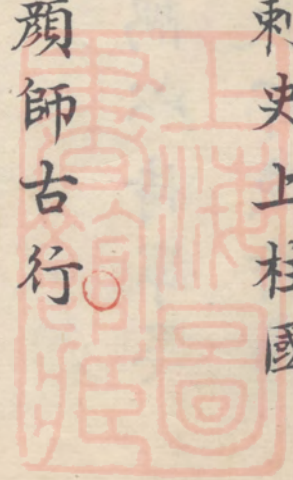 刺史上柱國
顔師古行
上海圖
書館藏